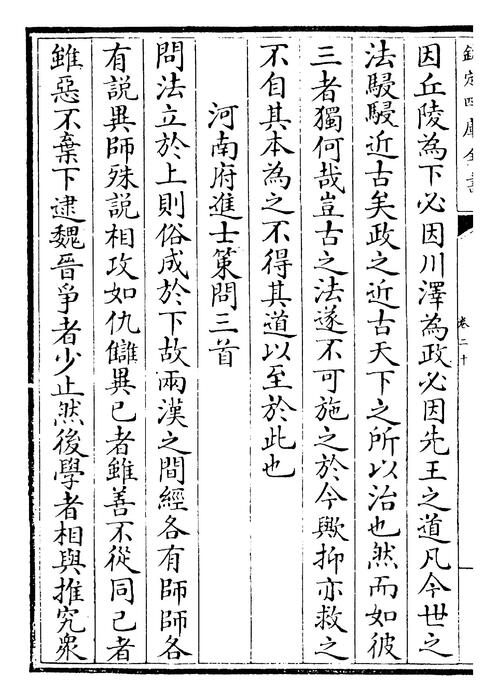 欽定四庫全書
卷二十
因丘陵為下必因川澤為政必因先王之道凡今世之
法駸駸近古矣政之近古天下之所以治也然而如彼
三者獨何哉豈古之法遂不可施之於今歟抑亦救之
不自其本為之不得其道以至於此也
河南府進士策問三首
問法立於上則俗成於下故兩漢之間經各有師師各
有說異師殊說相攻如仇讎異已者雖善不從同已者
雖惡不棄下逮魏晉爭者少止然後學者相與推究衆